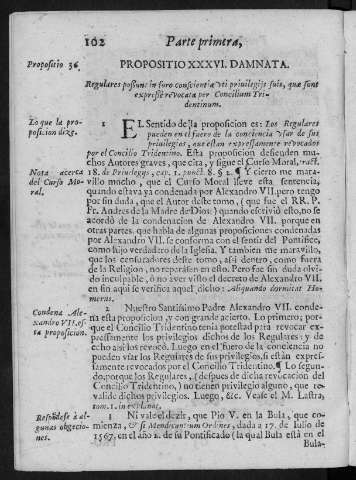 102 Parte primera,
Propositio 36.
PROPOSITIO XXXVI. DAMNATA.
Regulares possunt in foro conscientiæ vti privilegijs suis, quæ sunt
expressè revocata per Concilium Tri-
dentinum.
Lo que la pro-
posicion dize.
1 EL Sentido de la proposicion es: Los Regulares
pueden en el fuero de la conciencia vsar de sus
privilegios, que estàn expressamente revocados
por el Concilio Tridentino. Esta proposicion defienden mu-
chos Autores graves, que cita, y sigue el Curso Moral, tract.
Nota acerca
del Curso Mo-
ral.
18. de Privilegijs, cap. 1. punct. 8. §. 2. ¶ Y cierto me mara-
villo mucho, que el Curso Moral lleve esta sentencia,
quando estava yà condenada por Alexandro VII. pero tengo
por sin duda, que el Autor deste tomo, (que fue el RR. P.
Fr. Andres de la Madre de Dios) quando escriviò esto, no se
acordò de la condenacion de Alexandro VII. porque en
otras partes, que habla de algunas proposiciones condenadas
por Alexandro VII. se conforma con el sentir del Pontifice,
como hijo verdadero de la Iglesia. Y tambien me maravillo,
que los censuradores deste tomo, assi dentro, como fuera
de la Religion, no reparàsen en esto. Pero fue sin duda olvi-
do inculpable, ò no aver visto el decreto de Alexandro VII.
en fin aqui se verifica aquel dicho: Aliquando dormitat Ho-
merus.
Condena Ale-
xandro VII. es-
ta proposicion.
2 Nuestro Santissimo Padre Alexandro VII. conde-
na esta proposicion, y con grande acierto. Lo primero; por-
que el Concilio Tridentino tenia potestad para revocar ex-
pressamente los privilegios dichos de los Regulares; y de
echo assi los revocò. Luego en el fuero de la conciencia no
pueden vsar los Regulares de sus privilegios, si estàn expres-
samente revocados por el Concilio Tridentino. ¶ Lo segun-
do, porque los Regulares, (despues de dicha revocacion del
Concilio Tridentino) no tienen privilegio alguno, que re-
valide dichos privilegios. Luego, &c. Vease el M. Lastra,
tom. 1. in explanat.
Respòdese à al-
gunas objecio-
nes.
3 Ni vale dezir, que Pio V. en la Bula, que co-
mienza, Etsi Mendicantium Ordines, dada à 17. de Iulio de
1567. en el año 2. de su Pontificado (la qual Bula està en el
Bula-